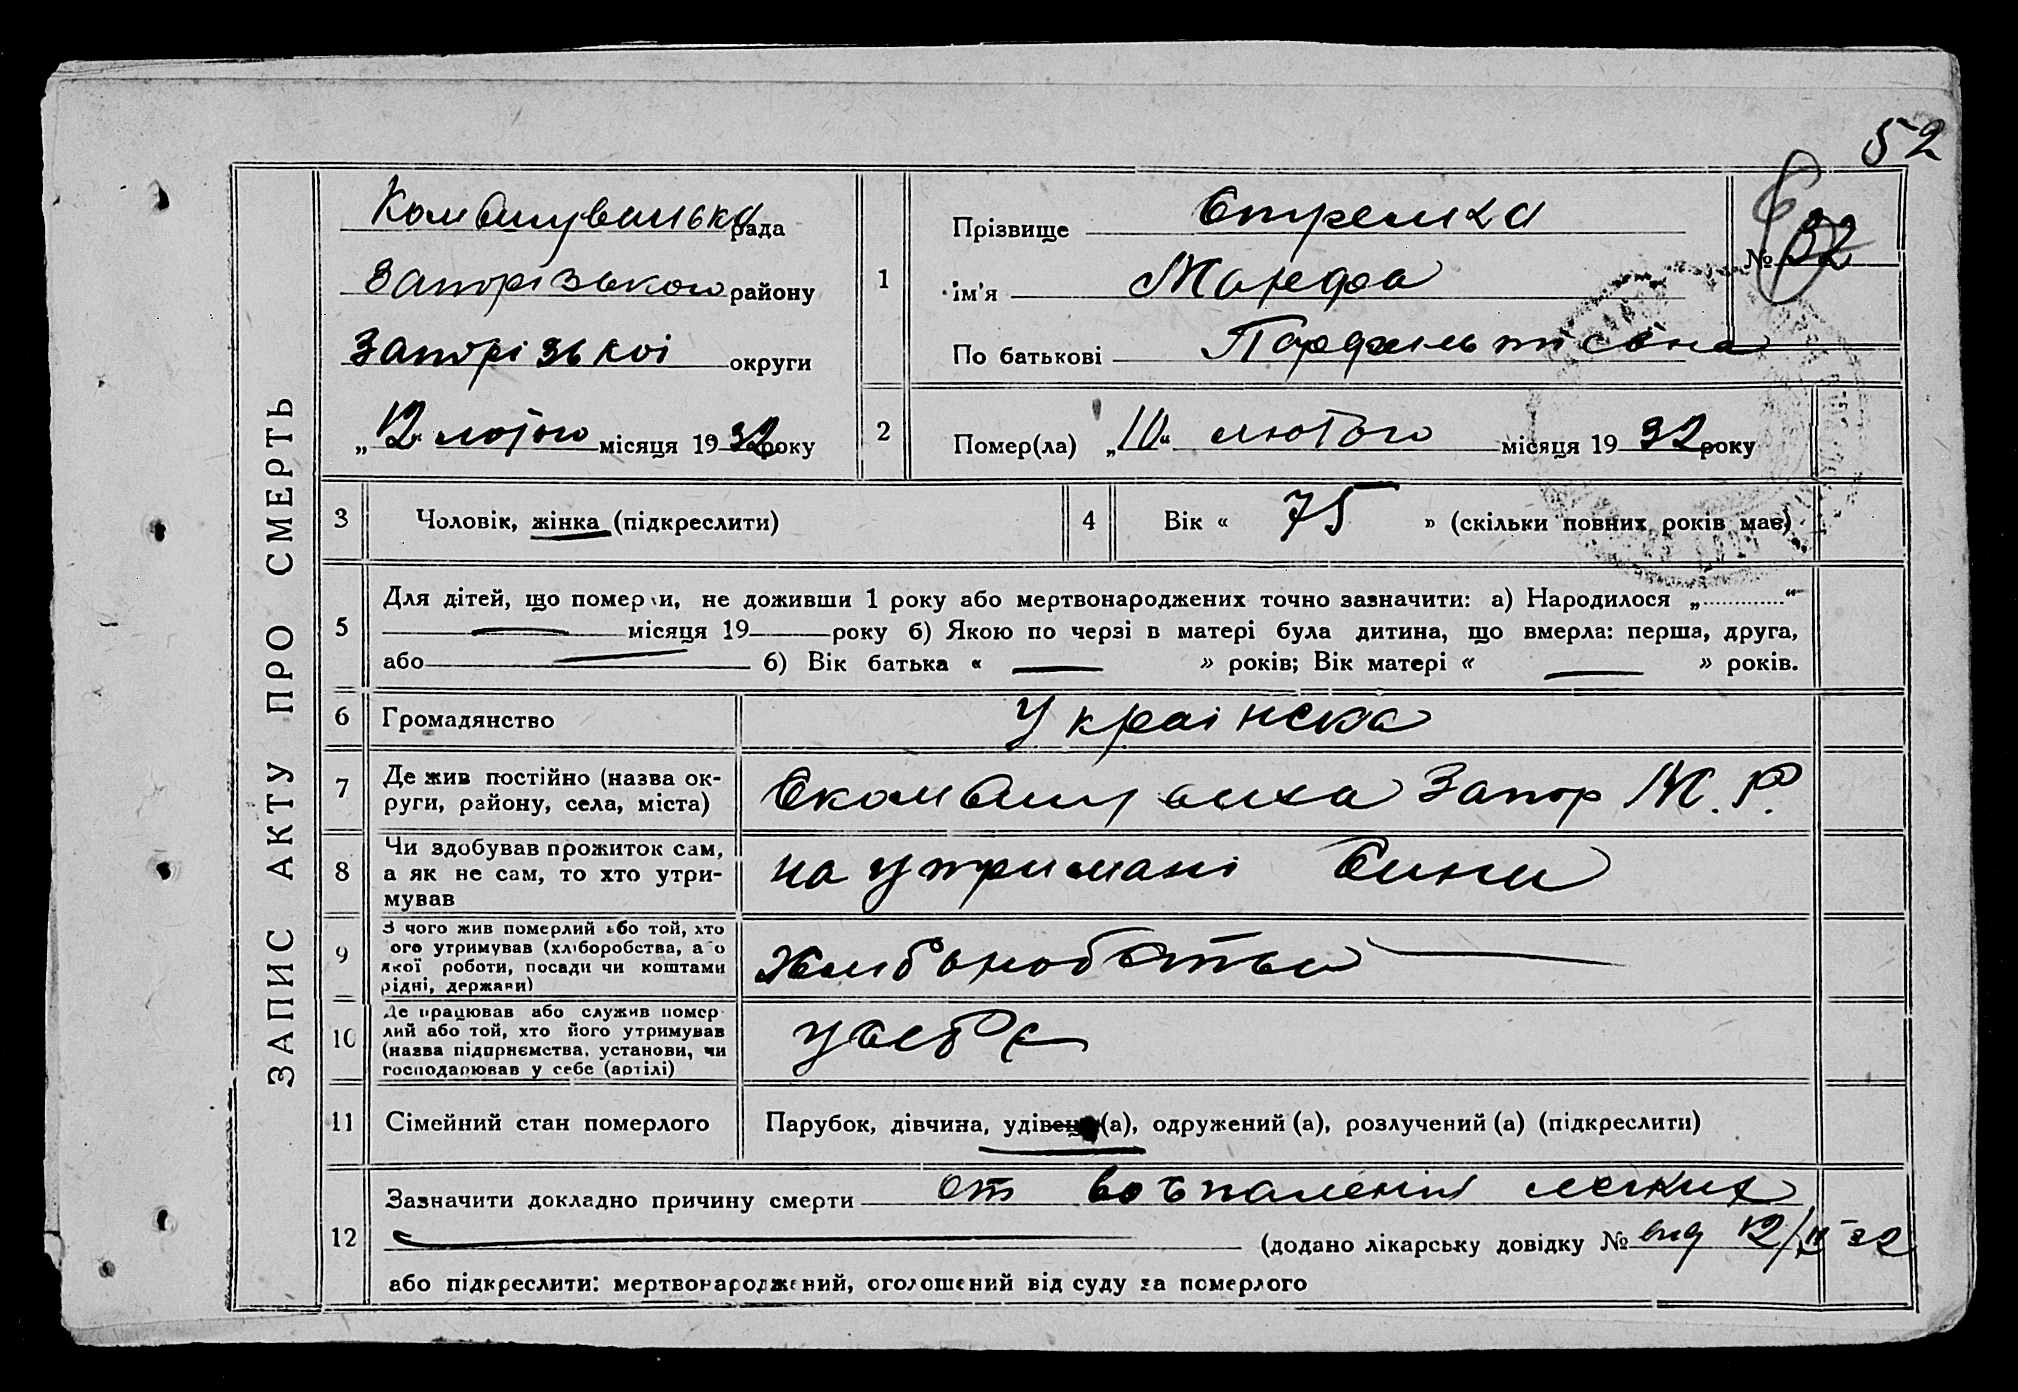 52
ЗАПИС АКТУ ПРО СМЕРТЬ
Комишуваська рада
Запорізького району
Запорізькоі округи
„12“ лютого місяця 1932 року
1
Прізвище
Імʼя Марфа
По батькові
№ 32
2
Помер(ла) „10“ лютого місяця 1932 року
3
Чоловік, жінка (підкреслити)
4
Вік « 75 » (скільки повних років мав)
5
Для дітей, що померли, не доживши 1 року або мертвонароджених точно зазначити: а) Народилося „............“
— місяця 19 року б) Якою по черзі в матері була дитина, що вмерла: перша, друга,
або — б) Вік батька « — » років; Вік матері « — » років.
6
Громадянство
Украінска
7
Де жив постійно (назва ок-
руги, району, села, міста)
Запор М. Р.
8
Чи здобував прожиток сам,
а як не сам, то хто утри-
мував
на утримані Сини
9
З чого жив померлий або той, хто
ого утримував (хліборобства, або
якої роботи, посади чи коштами
рідні, держави)
10
Де працював або служив помер-
лий або той, хто його утримував
(назва підпрнємства, установи, чи
господарював у себе (артілі)
усебе
11
Сімейний стан померлого
Парубок, дівчина, удівець(а), одружений (а), розлучений (а) (підкреслити)
12
Зазначити докладно причину смерти от воспаления легких
(додано лікарську довідку № від 12/II-32
або підкреслити: мертвонароджений, оголошений від суду за померлого